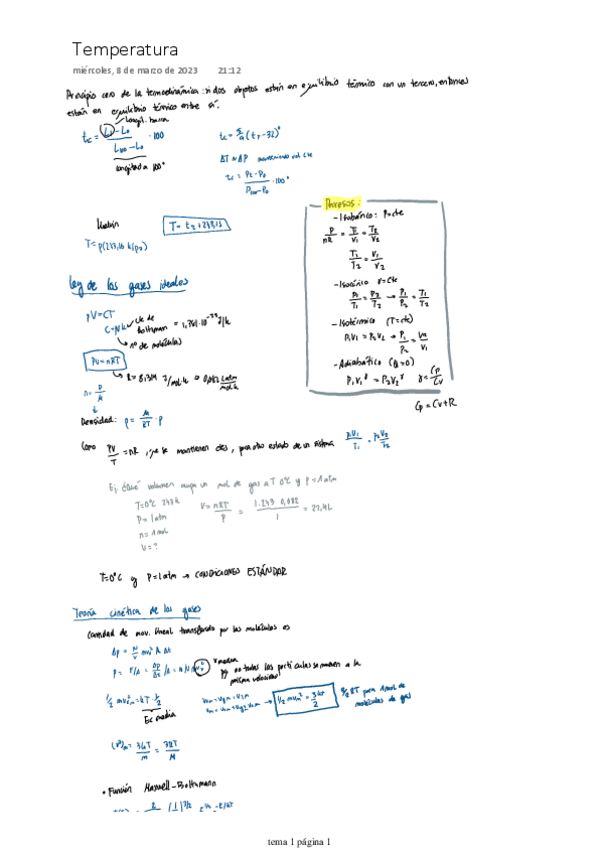 Temperatura
miércoles, 8 de marzo de 2023 21:12
Principio cero de la termodinámica: si dos objetos están en equilibrio térmico con un tercero, entonces
están en equilibrio térmico entre sí.
longit. barra
t_c = (L - L₀)/(L₁₀₀ - L₀) · 100
longitud a 100°
t_c = 5/9 (t_F - 32)°
ΔT ≈ ΔP manteniendo vol cte
t_c = (P_t - P₀)/(P₁₀₀ - P₀) · 100°
Kelvin
T = t_c + 273,15
Procesos:
- Isobárico: P = cte
P/nR = T₁/V₁ = T₂/V₂
T₁/T₂ = V₁/V₂
- Isocórico V = cte
P₁/T₁ = P₂/T₂ → P₁/P₂ = T₁/T₂
- Isotérmico (T = cte)
P₁V₁ = P₂V₂ → P₁/P₂ = V₂/V₁
- Adiabático (Q = 0)
P₁V₁^γ = P₂V₂^γ γ = Cp/Cv
Cp = Cv + R
Ley de los gases ideales
PV = CT
C = Nk cte de Boltzman
nº de moléculas
PV = nRT
Densidad: ρ = M/RT · P
Como PV/T = nR, que se mantienen ctes, para otro estado de un sistema P₁V₁/T₁ = P₂V₂/T₂
Ej: ¿Qué volumen ocupa un mol de gas a T 0°C y P = 1 atm
T = 0°C 273 K
P = 1 atm
n = 1 mol
V = ?
V = nRT/P = 1·273·0,082/1 = 22,4L
T = 0°C y P = 1 atm → CONDICIONES ESTÁNDAR
Teoría cinética de los gases
Cantidad de mov. lineal transferido por las moléculas es
v media
no todas las partículas se mueven a la
misma velocidad
Ec media
½ mv²m = 3kT/2
3/2 RT para 1 mol de
moléculas de gas
(v²)m = 3kT/m = 3RT/M
• Función Maxwell-Boltzmann
tema 1 página 1